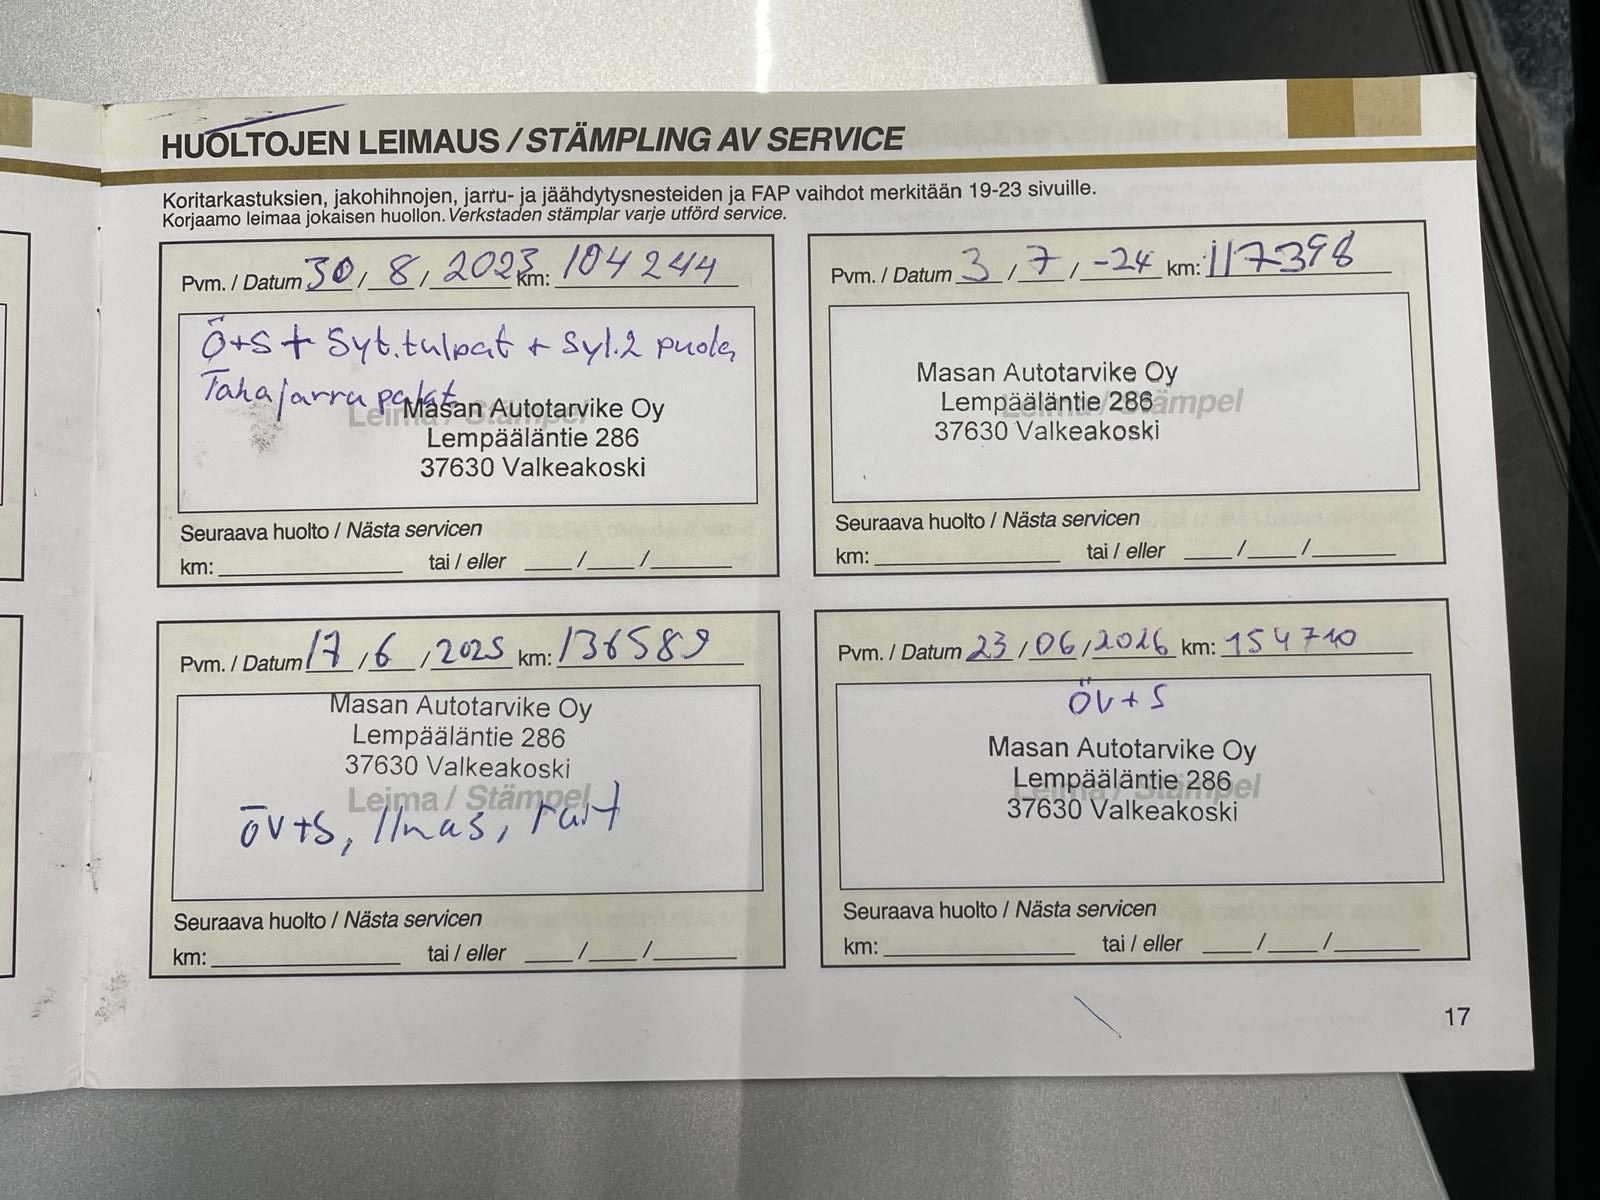 HUOLTOJEN LEIMAUS / STÄMPLING AV SERVICE
Koritarkastuksien, jakohihnojen, jarru- ja jäähdytysnesteiden ja FAP vaihdot merkitään 19-23 sivuille.
Korjaamo leimaa jokaisen huollon. Verkstaden stämplar varje utförd service.
Pvm. / Datum 30 / 8 / 2023 km: 104 244
Ö+S + Syt.tulpat + Syl.2 puola
Takajarru palat
Leima / Stämpel
Masan Autotarvike Oy
Lempääläntie 286
37630 Valkeakoski
Seuraava huolto / Nästa servicen
km: tai / eller / /
Pvm. / Datum 3 / 7 / -24 km: 117398
Masan Autotarvike Oy
Lempääläntie 286
Leima / Stämpel
37630 Valkeakoski
Seuraava huolto / Nästa servicen
km: tai / eller / /
Pvm. / Datum 17 / 6 / 2025 km: 136589
Masan Autotarvike Oy
Lempääläntie 286
37630 Valkeakoski
Leima / Stämpel
öv+s, Ilmas, rait
Seuraava huolto / Nästa servicen
km: tai / eller / /
Pvm. / Datum 23 / 06 / 2026 km: 154710
öv+s
Masan Autotarvike Oy
Lempääläntie 286
Leima / Stämpel
37630 Valkeakoski
Seuraava huolto / Nästa servicen
km: tai / eller / /
17